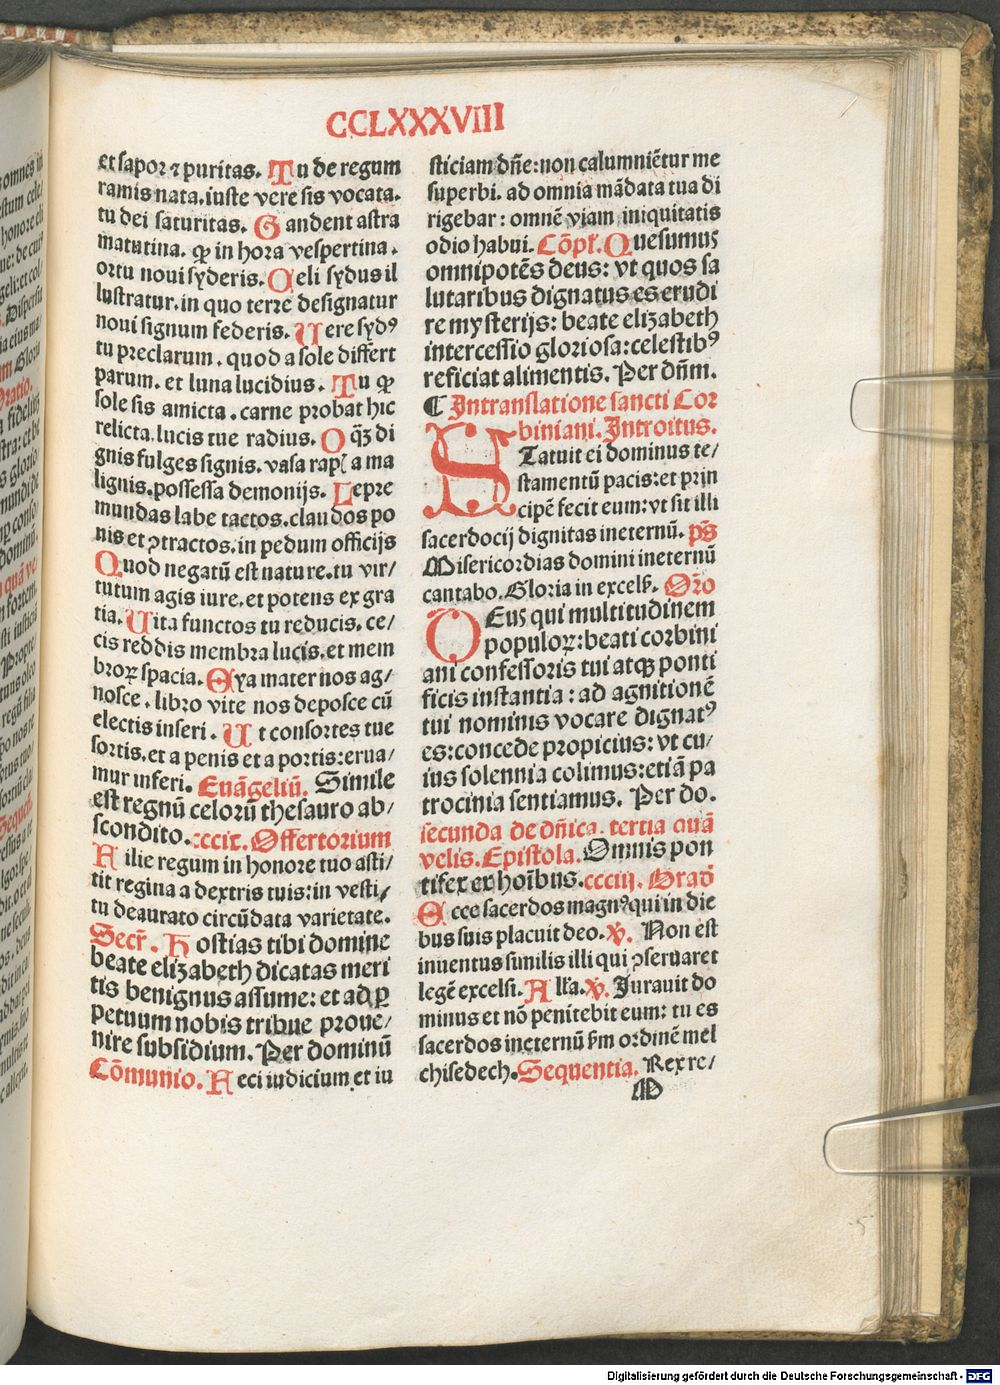 CCLXXXVIII
et sapor ⁊ puritas. Tu de regum
ramis nata. iuste vere sis vocata.
tu dei saturitas. Gandent astra
matutina. ꝙ in hora vespertina.
ortu noui syderis. Celi sydus il
lustratur. in quo terre designatur
noui signum federis. Uere sydꝰ
tu preclarum. quod a sole differt
parum. et luna lucidius. Tu ꝙ
sole sis amicta. carne probat hic
relicta. lucis tue radius. O qꝫ di
gnis fulges signis. vasa rapl̃ a ma
lignis. possessa demonijs. Lepre
mundas labe tactos. claudos po
nis et ꝯtractos. in pedum officijs
Quod negatū est nature. tu vir/
tutum agis iure. et potens ex gra
tia. Uita functos tu reducis. ce/
cis reddis membra lucis. et mem
broꝝ spacia. Eya mater nos ag/
nosce. libro vite nos deposce cū
electis inseri. Ut consortes tue
sortis. et a penis et a portis: erua/
mur inferi. Euāgeliū. Simile
est regnū celorū thesauro ab/
scondito. cccit. Offertorium
Filie regum in honore tuo asti/
tit regina a dextris tuis: in vesti/
tu deaurato circūdata varietate.
Secr̃. Hostias tibi domine
beate elizabeth dicatas meri
tis benignus assume: et ad ꝑ
petuum nobis tribue proue/
nire subsidium. Per dominū
Cōmunio. Feci iudicium et iu
sticiam dñe: non calumniētur me
superbi. ad omnia mādata tua di
rigebar: omnē viam iniquitatis
odio habui. Cōpl̃. Quesumus
omnipotēs deus: vt quos sa
lutaribus dignatus es erudi
re mysterijs: beate elizabeth
intercessio gloriosa: celestibꝰ
reficiat alimentis. Per dñm.
¶ In translatione sancti Cor
biniani. Introitus.
STatuit ei dominus te/
stamentū pacis: et prin
cipē fecit eum: vt sit illi
sacerdocij dignitas ineternū. p̄s
Misericordias domini ineternū
cantabo. Gloria in excels̃. Or̃o
DEus qui multitudinem
populoꝝ: beati corbini
ani confessoris tui atqꝫ ponti
ficis instantia: ad agnitionē
tui nominis vocare dignatꝰ
es: concede propicius: vt cu/
ius solennia colimus: etiā pa
trocinia sentiamus. Per do.
secunda de dñica. tertia quā
velis. Epistola. Omnis pon
tifex ex hoībus. ccciij. Gradō
Ecce sacerdos magnꝰ qui in die
bus suis placuit deo. ℣. Non est
inuentus similis illi qui ꝯseruaret
legē excelsi. All'a. ℣. Jurauit do
minus et nō penitebit eum: tu es
sacerdos ineternū s̃m ordinē mel
chisedech. Sequentia. Rex re/
M
Digitalisierung gefördert durch die Deutsche Forschungsgemeinschaft - DFG